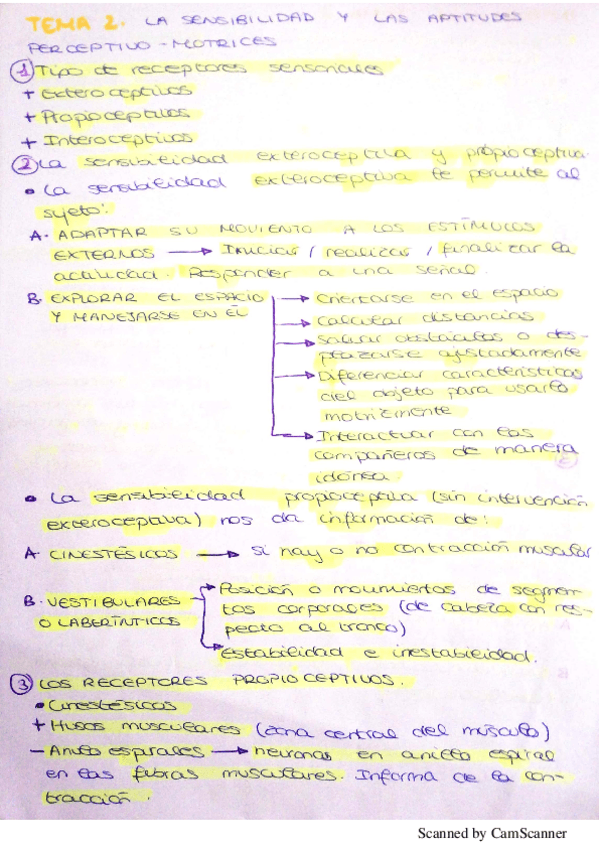 TEMA 2. LA SENSIBILIDAD Y LAS APTITUDES
PERCEPTIVO-MOTRICES
① Tipo de receptores sensoriales
+ Exteroceptivos
+ Propioceptivos
+ Interoceptivos
② La sensibilidad exteroceptiva y propioceptiva.
• La sensibilidad exteroceptiva te permite al
sujeto:
A. ADAPTAR SU MOVIENTO A LOS ESTÍMULOS
EXTERNOS → Iniciar / realizar / finalizar la
actividad. Responder a una señal.
B. EXPLORAR EL ESPACIO → Orientarse en el espacio
Y MANEJARSE EN ÉL → Calcular distancias
→ Salvar obstáculos o des-
plazarse ajustadamente
→ Diferenciar características
del objeto para usarlo
motrizmente
→ Interactuar con los
compañeros de manera
idónea.
• La sensibilidad propioceptiva (sin intervención
exteroceptiva) nos da información de:
A. CINESTÉSICOS → si hay o no contracción muscular
B. VESTIBULARES → Posición o movimientos de segmen-
O LABERÍNTICOS tos corporales (de cabeza con res-
pecto al tronco)
→ Estabilidad e inestabilidad.
③ LOS RECEPTORES PROPIOCEPTIVOS.
• Cinestésicos
+ Husos musculares (zona central del músculo)
- Anulo espirales → neuronas en anillo espiral
en las fibras musculares. Informa de la con-
tracción.
Scanned by CamScanner